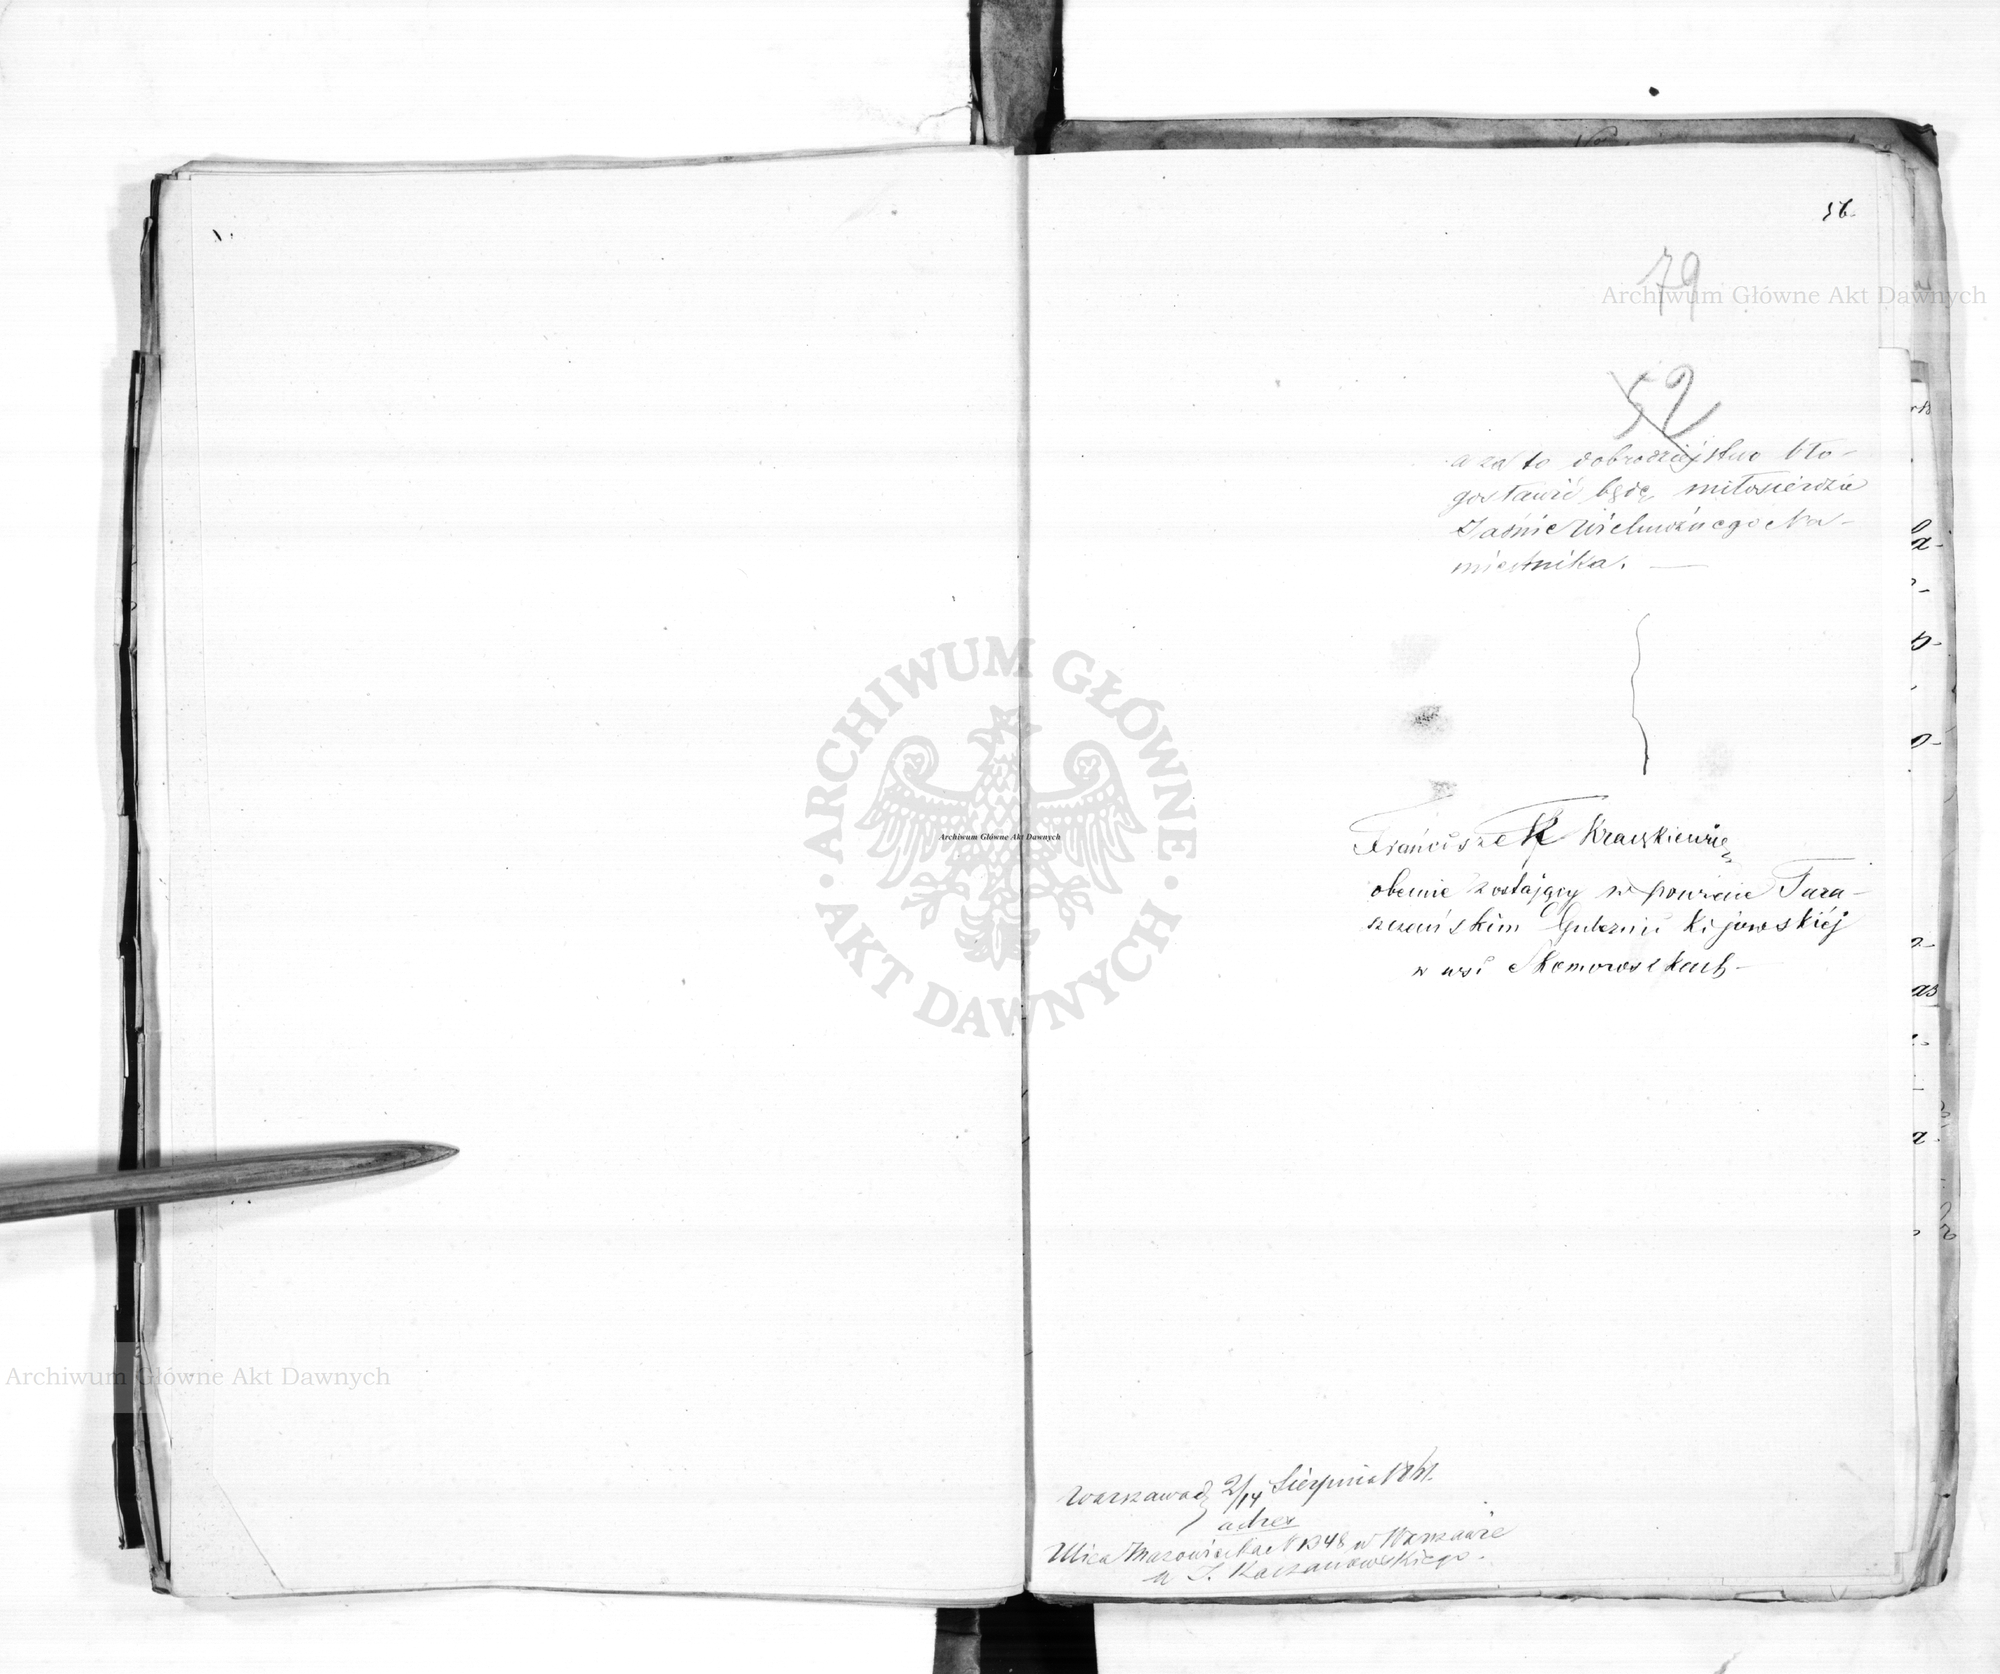 56.
79
Archiwum Główne Akt Dawnych
52
a za to dobrodziejstwo bło-
gosławić będę miłosierdzie
Jaśnie Wielmożnego Na-
miestnika. —
ARCHIWUM GŁÓWNE
Archiwum Główne Akt Dawnych
· AKT DAWNYCH ·
Franciszek Kraszkiewicz
obecnie zostający w powiecie Tara-
szczańskim Gubernii Kijowskiéj
w wsi Skomoroszkach—
Archiwum Główne Akt Dawnych
Warszawa d 2/14 Sierpnia 1861.
adres
Ulica Mazowiecka N 1348 w Warszawie
u J. Kaczanowskiego.